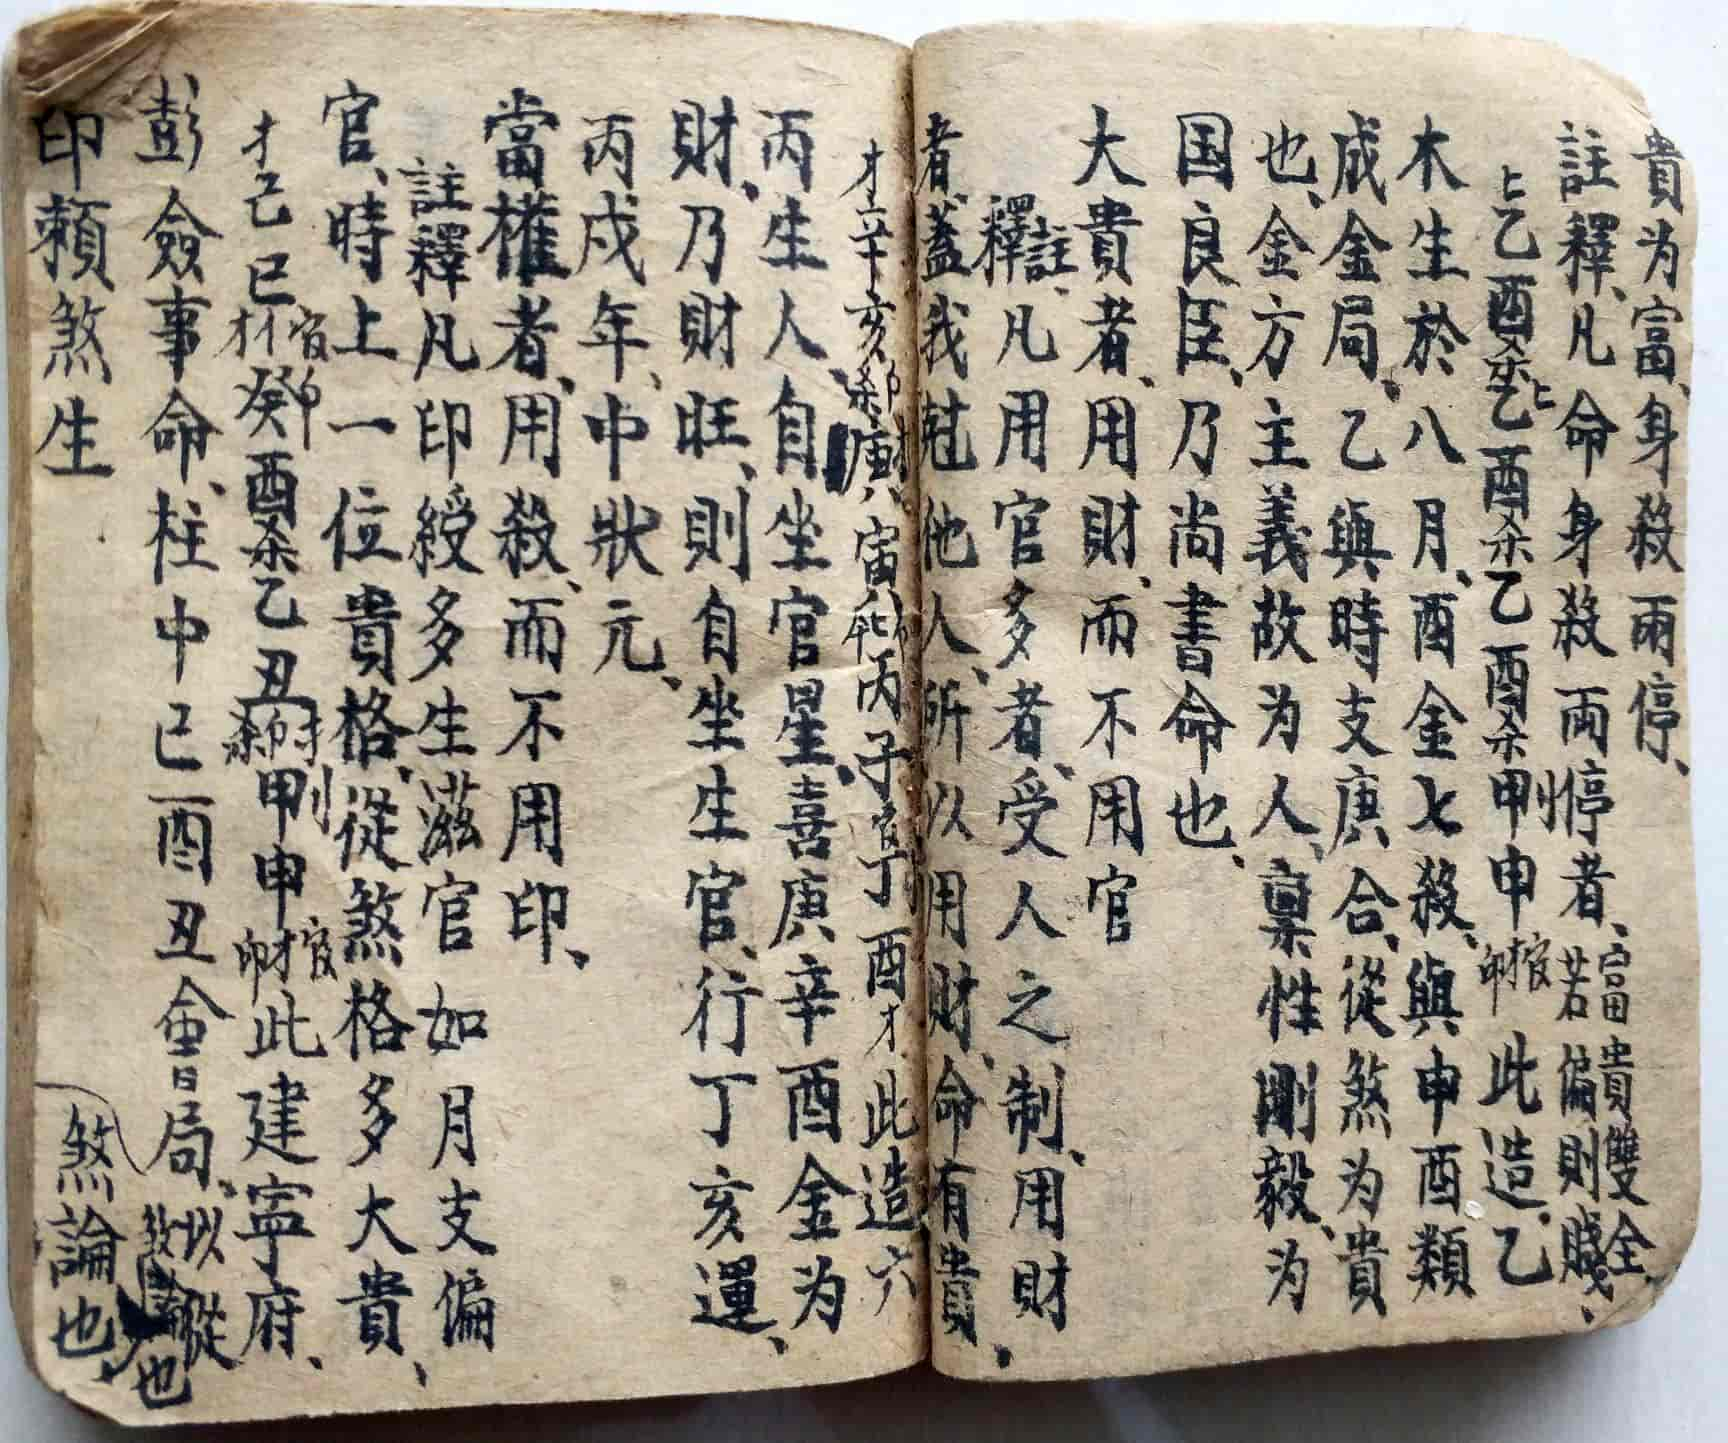 貴为富、身殺兩停、
註釋、凡命身殺両停者、富貴雙全、若偏則賤、
乙酉杀乙酉杀乙酉杀甲申官才印此造、乙
木生於八月、酉金七殺、與申酉類
成金局、乙與時支庚合、從煞为貴
也、金方主義故为人、稟性剛毅、为
国良臣、乃尚書命也、
大貴者、用財、而不用官
註釋、凡用官多者、受人之制、用財
者、蓋我尅他人、所以用財、命有貴、
才辛亥杀印庚寅丙子官丁酉才此造六
丙生人、自坐官星、喜庚辛酉金为
財、乃財財旺、則自坐生官、行丁亥運、
丙戍年、中狀元、
當權者、用殺、而不用印、
註釋凡印綬多生滋官如月支偏
官、時上一位貴格、從煞格多大貴、
才己巳官印癸酉杀乙丑杀印才甲申官才印此建寧府、
彭僉事命、柱中巳酉丑會局、以從煞論也
印賴煞生煞論也、